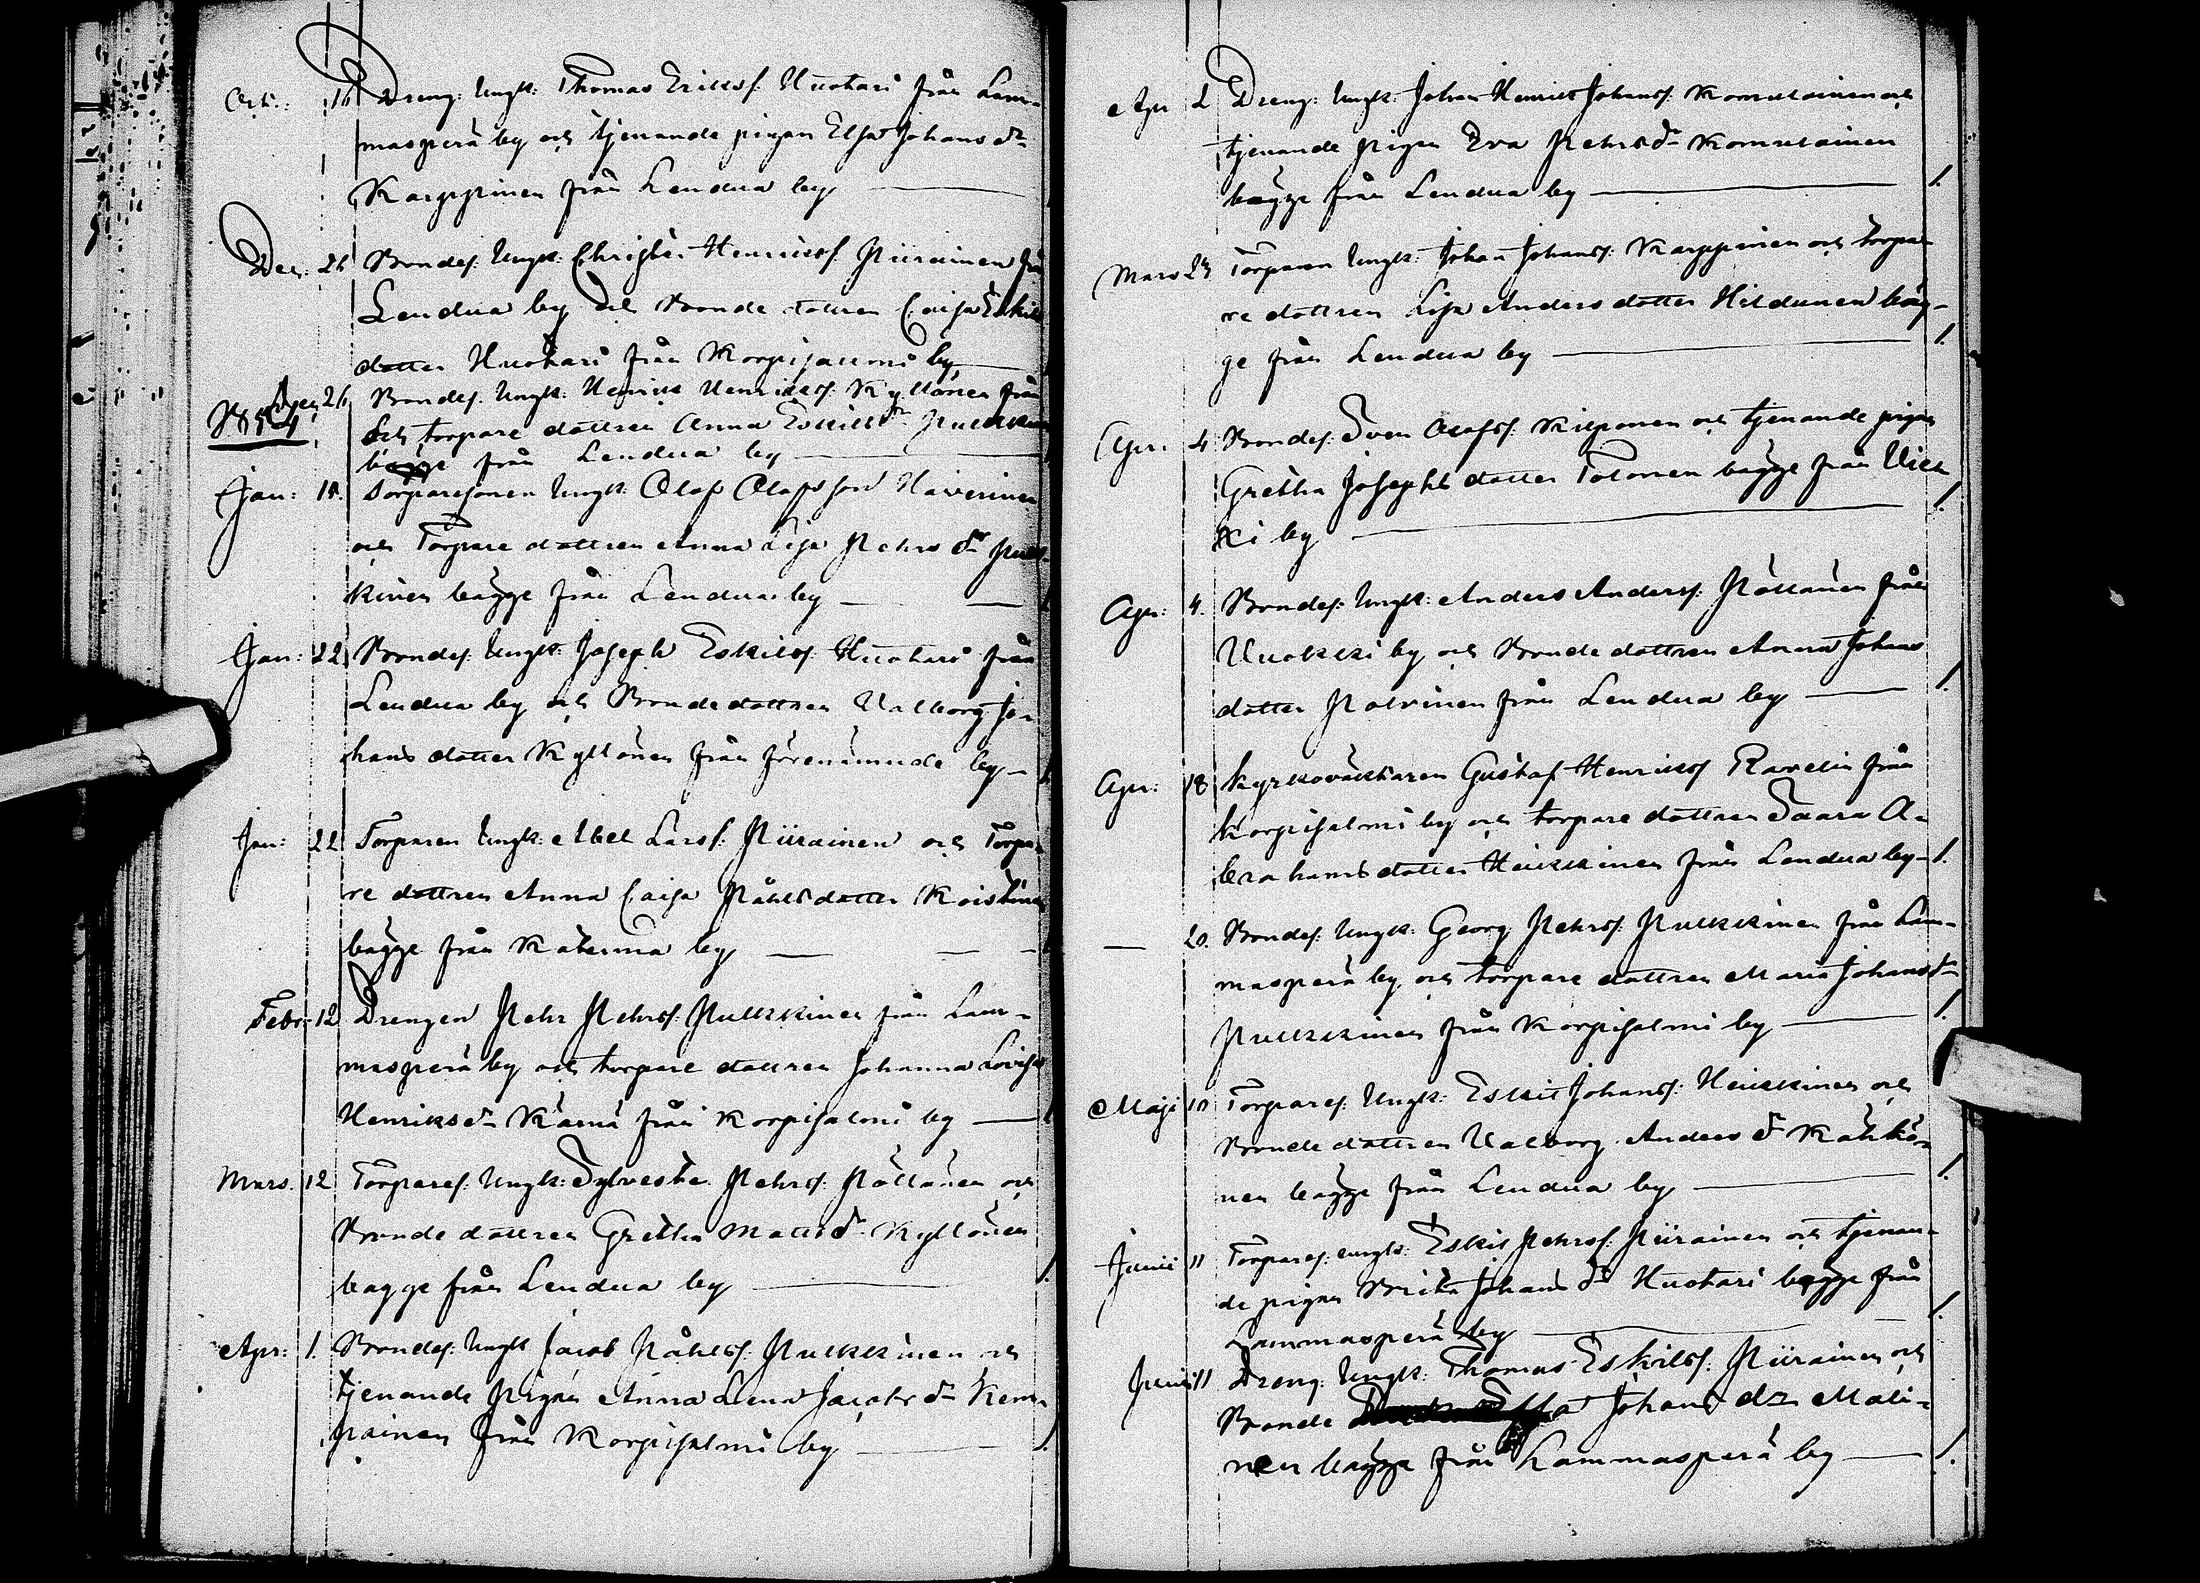 Oct: 16 Dreng: Ungk: Thomas Erikss: Huotari från Lam-
masperä by och tjenande pigan Elsa Johans dr
Karppinen från Lendua by
Dec: 26 Bondes: Ungk: Christer Henrikss Piirainen från
Lendua by och Bonde dottren Caisa Eskils
dotter Huotari från Korpisalmi by
Dec 26 Bondes: Ungk: Henrik Henrikss: Kyllönen från
1854
och torpare dottren Anna Eskils dr Pulkkinen
bägge från Lendua by
Jan: 18. Torparesonen Ungk: Olof Olofsson Haverinen
och Torpare dottren Anna Lisa Pehrs dr Pulk-
kinen bägge från Lendua by 1.
Jan: 22 Bondes: Ungk: Joseph Eskilss: Huotari från
Lendua by och Bondedottren Valborg Jo-
hans dotter Kyllönen från förenämnde by
Jan: 22 Torparen Ungk: Abel Larss: Piirainen och Torpa-
re dottren Anna Caisa Påhlsdotter Koistinen
bägge från Katerma by
Febr: 12 Drengen Pehr Pehrss: Pulkkinen från Lam-
masperä by och torpare dottren Johanna Lovisa
Henriksdr Kärnä från Korpisalmi by
Mars. 12 Torpares: Ungk: Sylvester Pehrss: Pöllänen och
Bonde dottren Gretha Matts dr Kyllönen
bägge från Lendua by 1.
Apr: 1. Bondes: Ungk Jacob Påhlss: Pulkkinen och
tjenande Pigan Anna Lena Jacobs dr Kem-
painen från Korpisalmi by 1.
Apr 2 Dreng: Ungk: Johan Henrik Johanss: Komulainen och
tjenande pigan Eva Pehrsdr Komulainen
bägge från Lendua by 1.
Mars 23 Torparen Ungk: Johan Johanss: Karppinen och torpa-
re dottren Lisa Anders dotter Hildunen bäg-
ge från Lendua by 1.
Apr: 4 Bondes: Sven Olofss: Kilponen och tjenande pigan
Gretha Josephs dotter Tolonen bägge från Viek-
ki by 1.
Apr: 4. Bondes: Ungk: Anders Anderss: Pöllänen från
Vuokki by och Bonde dottren Anna Johans
dotter Polvinen från Lendua by 1.
Apr: 18 Kyrkoväktaren Gustaf Henrikss Ravelin från
Korpisalmi by och torpare dottren Saara A-
brahams dotter Heikkinen från Lendua by 1.
— 20. Bondes: Ungk: Georg Pehrss: Pulkkinen från Lam-
masperä by och torpare dottren Maria Johans dr
Pulkkinen från Korpisalmi by 1.
Maji 10 Torpares: Ungk: Eskil Johanss: Heikkinen och
Bonde dottren Valborg Anders dr Kähkö-
nen bägge från Lendua by 1.
Junii 11 Torpares: ungk: Eskil Pehrss: Piirainen och tjenan-
de pigan Brita Johans dr Huotari bägge från
Lammasperä by 1.
Junii 11 Dreng: Ungk: Thomas Eskilss: Piirainen och
Bonde Johans dr Mali-
nen bägge från Lammasperä by 1.